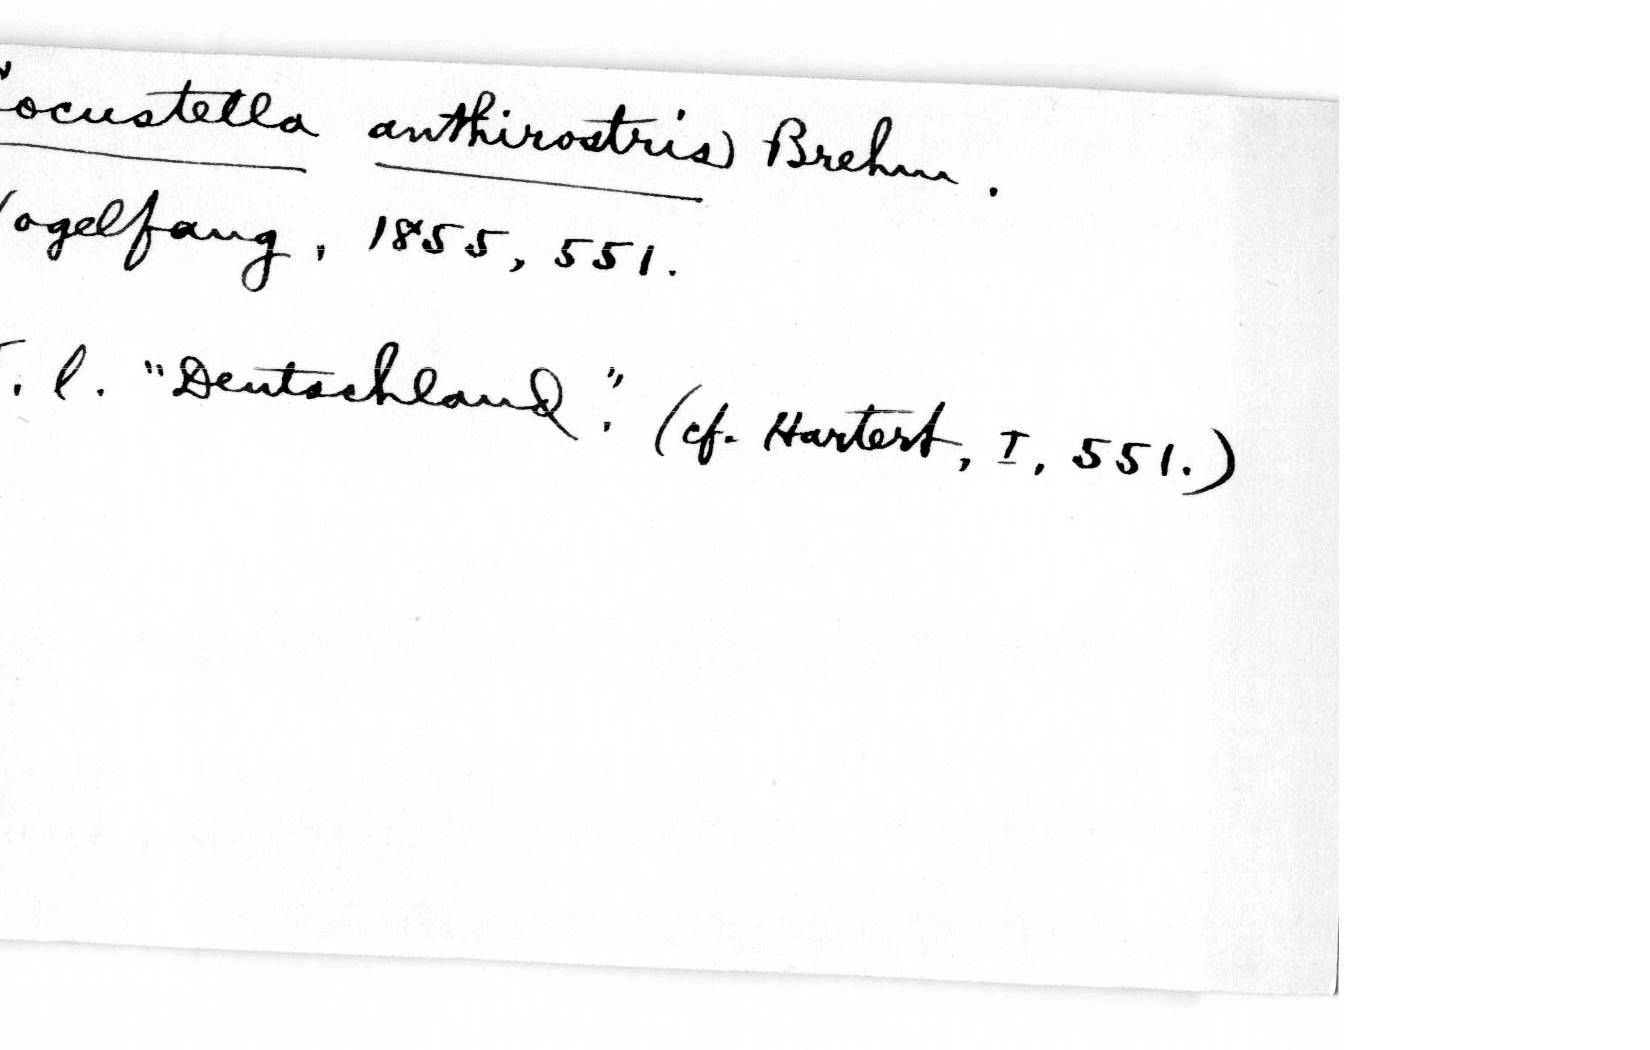 ocustella anthirostris Brehm.
ogelfang, 1855, 551.
. l. "Deutschland". (cf. Hartert, I, 551.)